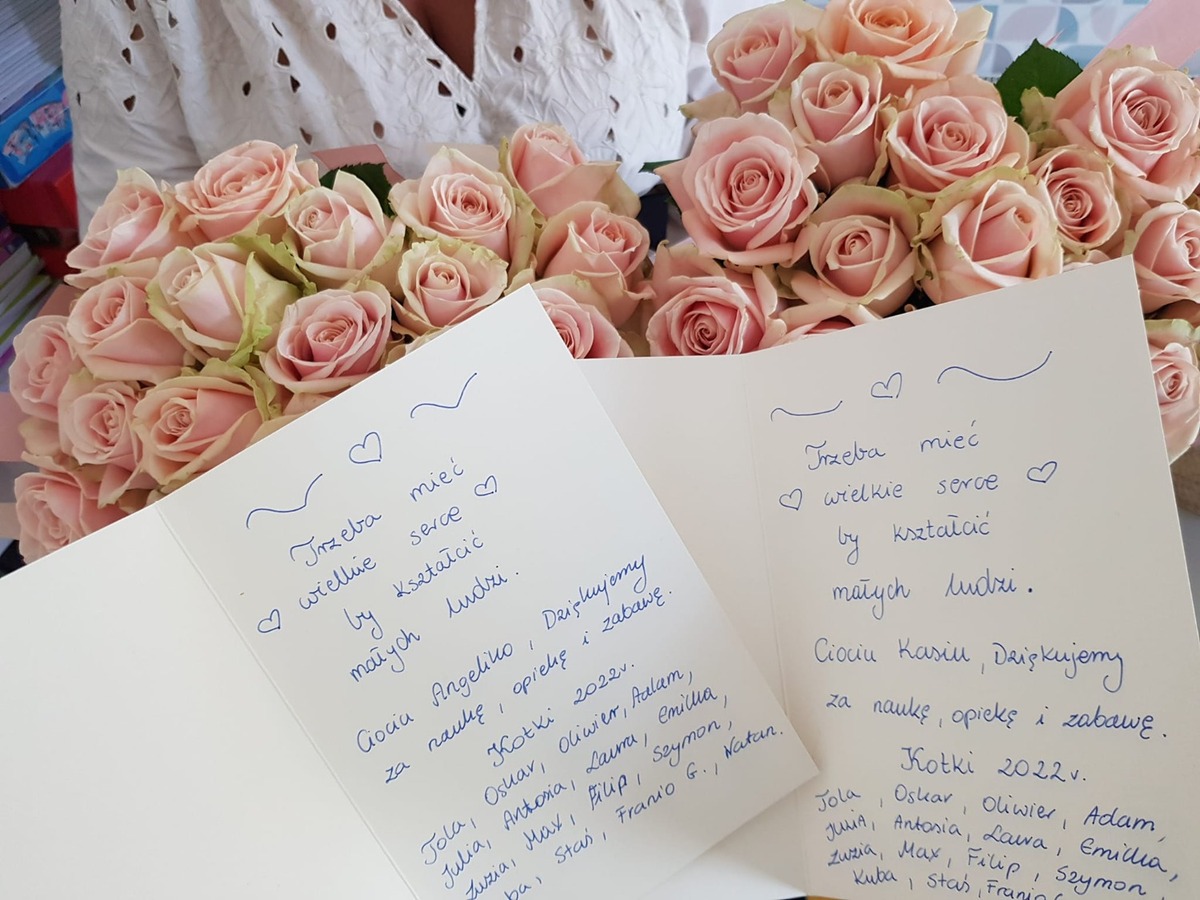 Trzeba mieć
wielkie serce
by kształcić
małych ludzi.
Ciociu Angeliko, Dziękujemy
za naukę, opiekę i zabawę.
Kotki 2022r.
Jola, Oskar, Oliwier, Adam,
Julia, Antosia, Laura, Emilka,
Zuzia, Max, Filip, Szymon,
ba, Staś, Franio G., Natan.
Trzeba mieć
wielkie serce
by kształcić
małych ludzi.
Ciociu Kasiu, Dziękujemy
za naukę, opiekę i zabawę.
Kotki 2022r.
Jola, Oskar, Oliwier, Adam,
Julia, Antosia, Laura, Emilka,
Zuzia, Max, Filip, Szymon,
Kuba, Staś, Franio